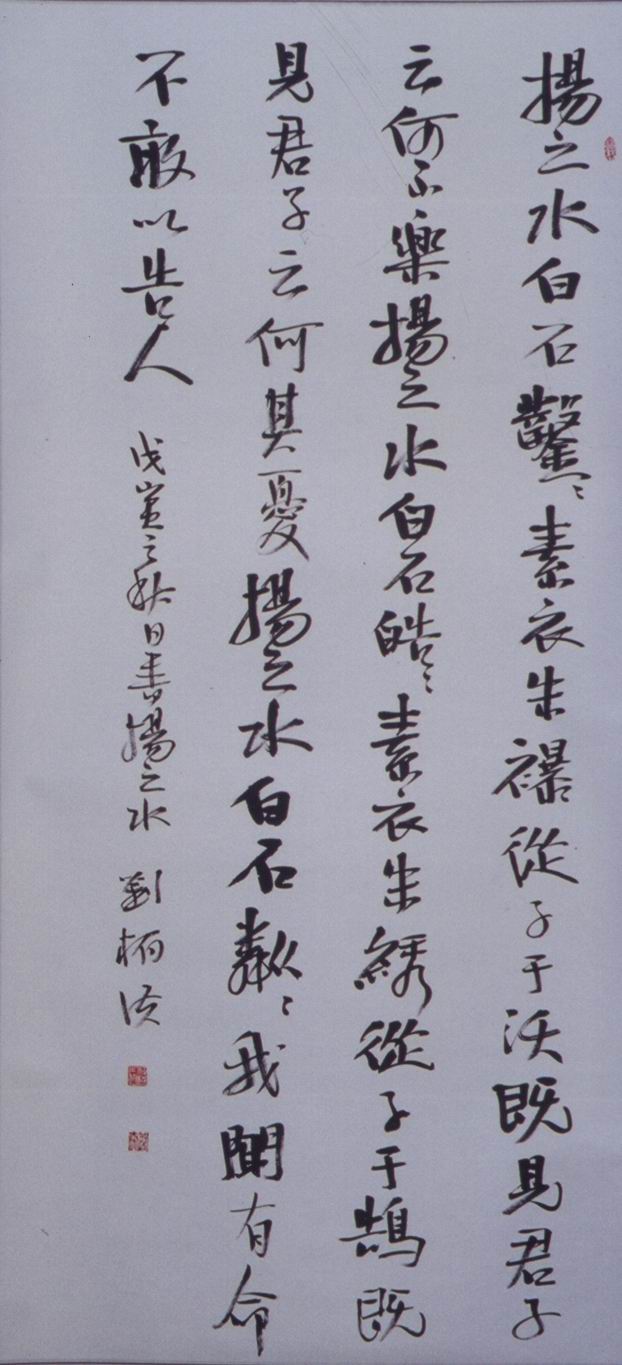 揚之水白石鑿〻素衣朱襮從子于沃既見君子
云何不樂揚之水白石皓〻素衣朱綉從子于鵠既
見君子云何其憂揚之水白石粼〻我聞有命
不敢以告人
戊寅之秋日書揚之水 劉柄